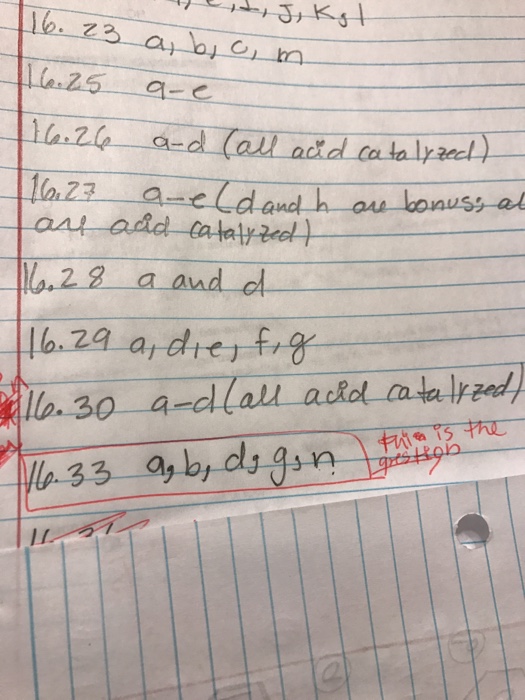 J, K, l
16. 23 a, b, c, m
16.25 a-e
16.26 a-d (all acid catalyzed)
16.27 a-e (d and h are bonuss al
are acid catalyzed)
16.28 a and d
16.29 a, d, e, f, g
16.30 a-d (all acid catalyzed)
16.33 a, b, d, g, n
this is the
question